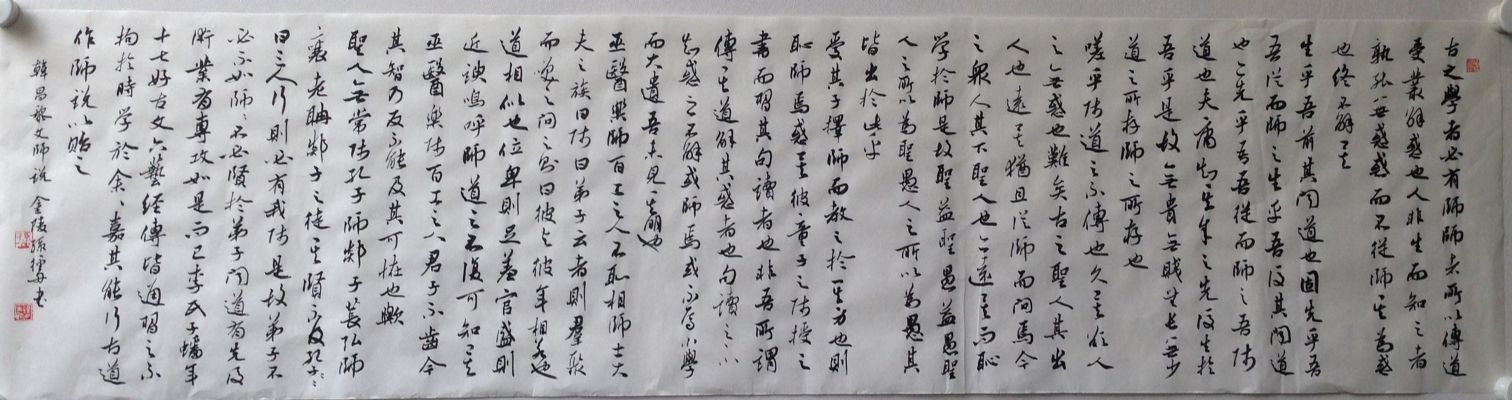 古之學者必有師師者所以傳道
受業解惑也人非生而知之者
孰能無惑惑而不從師其為惑
也終不解矣
生乎吾前其聞道也固先乎吾
吾從而師之生乎吾後其聞道
也亦先乎吾吾從而師之吾師
道也夫庸知其年之先後生於
吾乎是故無貴無賤無長無少
道之所存師之所存也
嗟乎師道之不傳也久矣欲人
之無惑也難矣古之聖人其出
人也遠矣猶且從師而問焉今
之眾人其下聖人也亦遠矣而恥
學於師是故聖益聖愚益愚聖
人之所以為聖愚人之所以為愚其
皆出於此乎
愛其子擇師而教之於其身也則
恥師焉惑矣彼童子之師授之
書而習其句讀者也非吾所謂
傳其道解其惑者也句讀之不
知惑之不解或師焉或不焉小學
而大遺吾未見其明也
巫醫樂師百工之人不恥相師士大
夫之族曰師曰弟子云者則羣聚
而笑之問之則曰彼與彼年相若也
道相似也位卑則足羞官盛則
近諛嗚呼師道之不復可知矣
巫醫樂師百工之人君子不齒今
其智乃反不能及其可怪也歟
聖人無常師孔子師郯子萇弘師
襄老聃郯子之徒其賢不及孔子孔子
曰三人行則必有我師是故弟子不
必不如師師不必賢於弟子聞道有先後
術業有專攻如是而已李氏子蟠年
十七好古文六藝經傳皆通習之不
拘於時學於余余嘉其能行古道
作師說以貽之
韓昌黎文師說 金陵孫